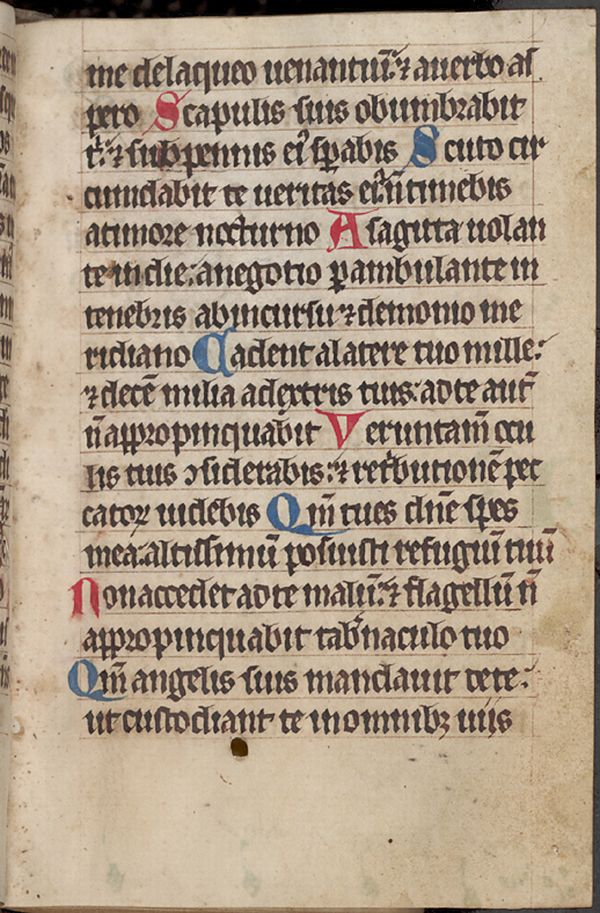 me de laqueo uenantiū: ⁊ a uerbo as
pero Scapulis suis obumbrabit
t̉: ⁊ sub pennis ei᾽ sꝑabis Scuto cir
cumdabit te ueritas ei᾽: ñ timebis
a timore nocturno A sagitta uolan
te in die: a negotio ꝑambulante in
tenebris ab incursu ⁊ demonio me
ridiano Cadent a latere tuo mille:
⁊ decē milia a dextris tuis: ad te aut̄
ñ appropinquabit Veruntam̄ ocu
lis tuis ↄsiderabis: ⁊ ret̉butionē pec
catoꝝ uidebis Qm̄ tu es dn̄e spes
mea: altissimū posuisti refugiū tuū
Non accedet ad te malū: ⁊ flagellū ñ
appropinquabit tab̉naculo tuo
Qm̄ angelis suis mandauit de te:
ut custodiant te in omnibꝫ uiis